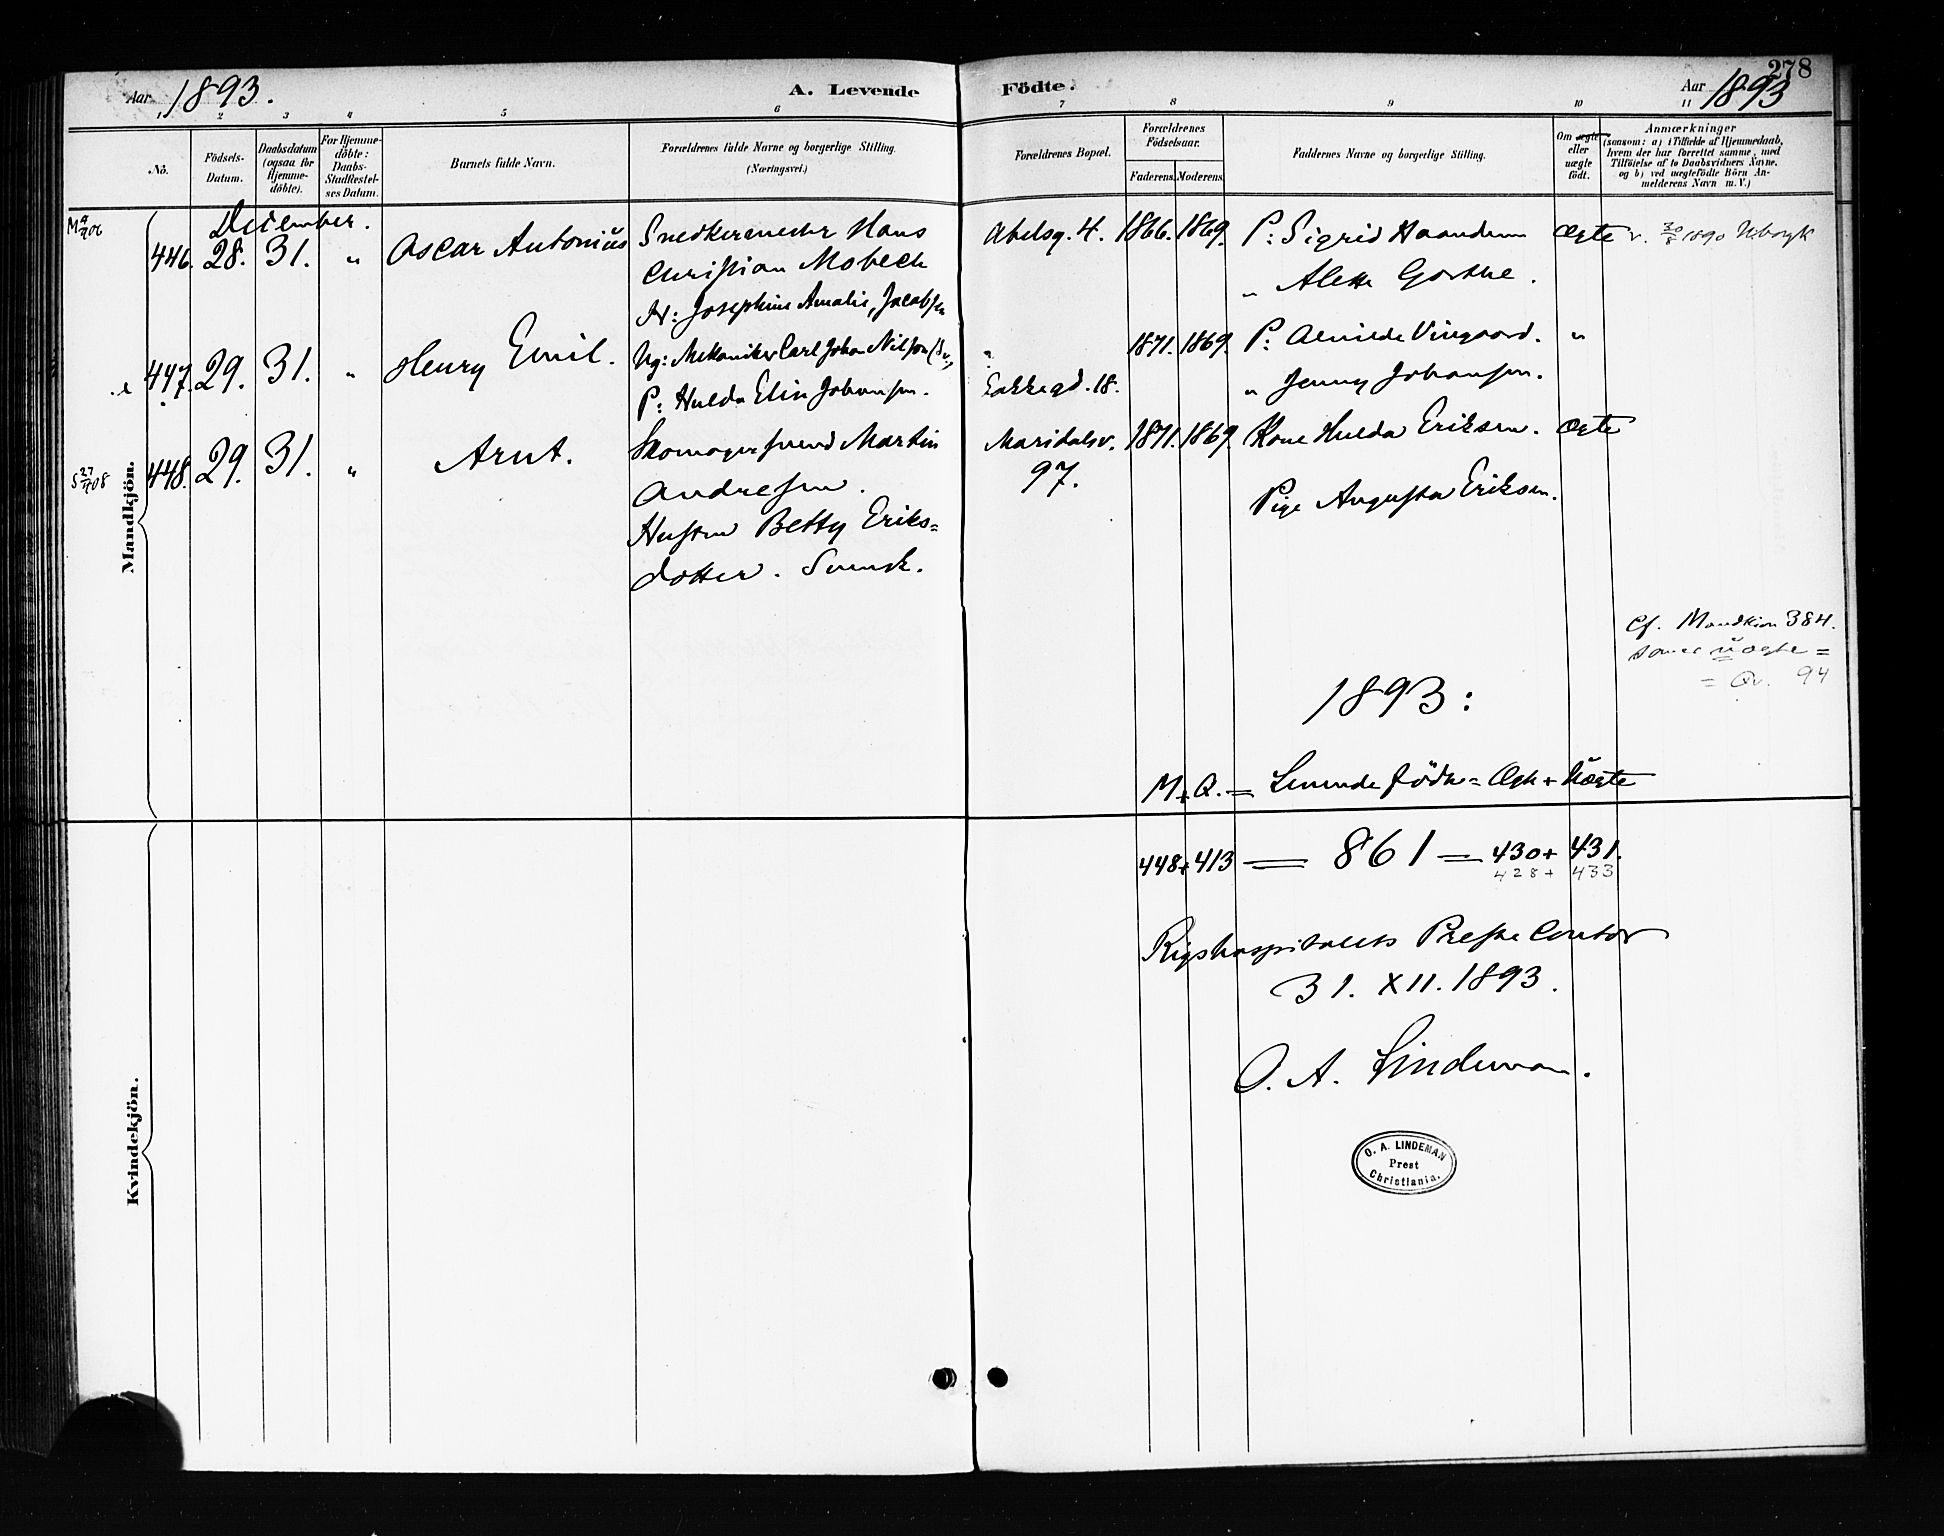 278
Aar 1893.
A. Levende Födte.
Aar 1893
1 2 3 4 5 6 7 8 9 10 11
No.
Födsels-
Datum.
Daabsdatum
(ogsaa for
Hjemme-
döbte).
For Hjemme-
döbte:
Daabs-
Stadfæstel-
ses Datum.
Barnets fulde Navn.
Forældrenes fulde Navne og borgerlige Stilling.
(Næringsvei.)
Forældrenes Bopæl.
Forældrenes
Födselsaar.
Faderens. Moderens.
Faddernes Navne og borgerlige Stilling.
Om ægte
eller
uægte
födt.
Anmærkninger
(saasom: a) i Tilfælde af Hjemmedaab,
hvem der har forrettet samme, med
Tilföielse af to Daabsvidners Navne.
og b) ved uægtefödte Börn An-
melderens Navn m. V.)
Mandkjön.
December.
446. 28. 31. " Oscar Antonius
Snedkermester Hans
Christian Mobech
H: Josephine Amalie, Jacobsen
Abelsg. 4. 1866. 1869.
P: Sigrid Haandem
" Alette Gorthe.
Ægte
447. 29. 31. " Henry Emil.
Ug: Mekaniker Carl Johan Nilsson (Sv.)
P: Hulda Elin Johansen.
Bakkegd. 18. 1871. 1869.
P: Alvilde Vingaard.
" Jenny Johansen.
"
448. 29. 31. " Arnt.
Skomagersvend Martin
Andresen.
Hustru Betty Eriks=
dotter. Svensk.
Maridalsv.
97.
1871. 1869.
Kone Hulda Eriksen.
Pige Augusta Eriksen.
Ægte
Cf. Mandkion 384.
= Qv. 94
1893:
M + Q. = Levende födte = Ægte + Uægte
448 + 413 = 861 = 430 + 431.
428 + 433
Rigshospitalets Preste Contor
31. XII. 1893.
O. A. Lindeman.
O. A. LINDEMAN
Prest
Christiania.
Kvindekjön.